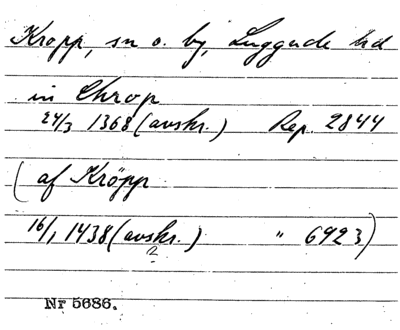 Kropp, sn o. by, Luggude hd
in Chrop
24/3 1368 (avskr.) Rep. 2844
(af Kröpp
16/1 1438 (avskr.) " 6923)
?
Nr 5686.